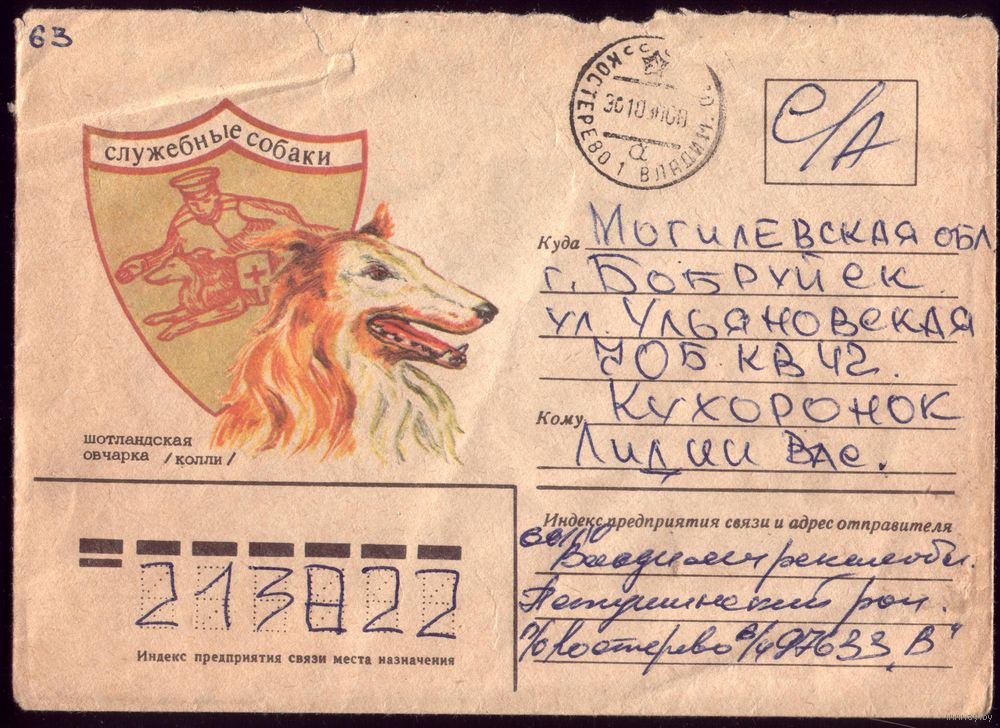 63
служебные собаки
КОСТЕРЕВО 1 ВЛАДИМ. О.
СССР
а
С/А
Куда МОГИЛЕВСКАЯ ОБЛ
г. БОБРУЙСК
УЛ. УЛЬЯНОВСКАЯ
КВ 42.
Кому КУХОРОНОК
ЛИДИИ ВАС.
шотландская
овчарка /колли/
Индекс предприятия связи и адрес отправителя
Владимирская обл.
Петушинский рай.
п/о Костерево в/ч 97633 "В"
213822
Индекс предприятия связи места назначения